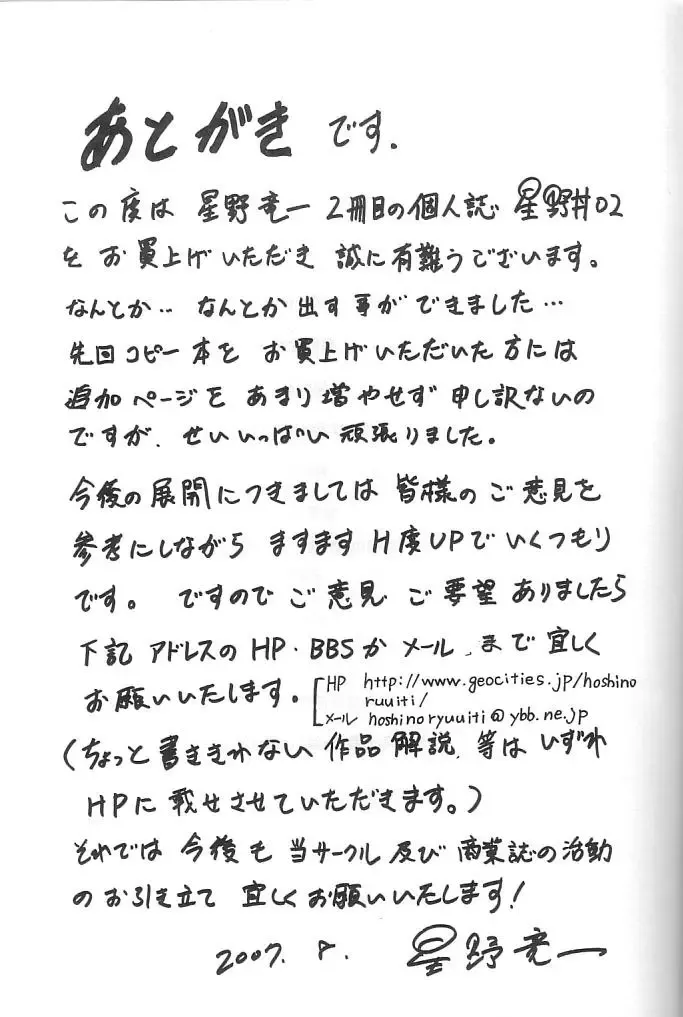 あとがき です.
この度は 星野竜一 2冊目の個人誌 星野丼02
を お買上げいただき 誠に有難うございます。
なんとか‥ なんとか出す事ができました…
先回コピー本を お買上げいただいた方には
追加ページを あまり増やせず 申し訳ないの
ですが、せいいっぱい頑張りました。
今後の展開につきましては 皆様のご意見を
参考にしながら ますますH度UPでいくつもり
です。 ですので ご意見 ご要望 ありましたら
下記 アドレスのHP・BBSか メール、まで 宜しく
お願いいたします。
HP http://www.geocities.jp/hoshino
ruuiti/
メール hoshinoryuuiti@ybb.ne.jp
(ちょっと書ききれない 作品解説、等は いずれ
HPに 載せさせていただきます。)
それでは 今後も 当サークル 及び 商業誌の活動
の お引き立て 宜しくお願いいたします!
2007. 8. 星野竜一